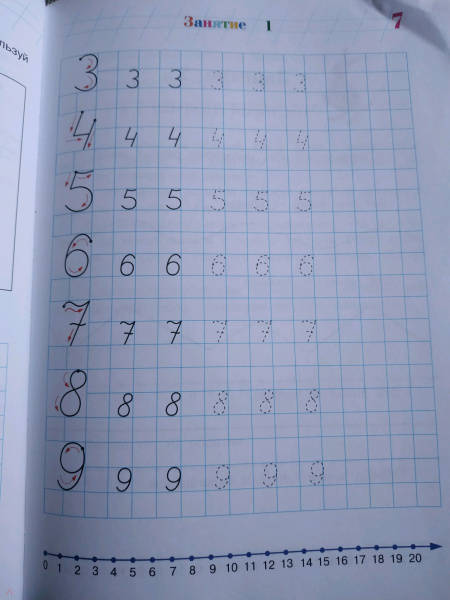 льзуй
Занятие 1
7
3 3 3 3 3 3
4 4 4 4 4 4
5 5 5 5 5 5
6 6 6 6 6 6
7 7 7 7 7 7
8 8 8 8 8 8
9 9 9 9 9 9
0 1 2 3 4 5 6 7 8 9 10 11 12 13 14 15 16 17 18 19 20